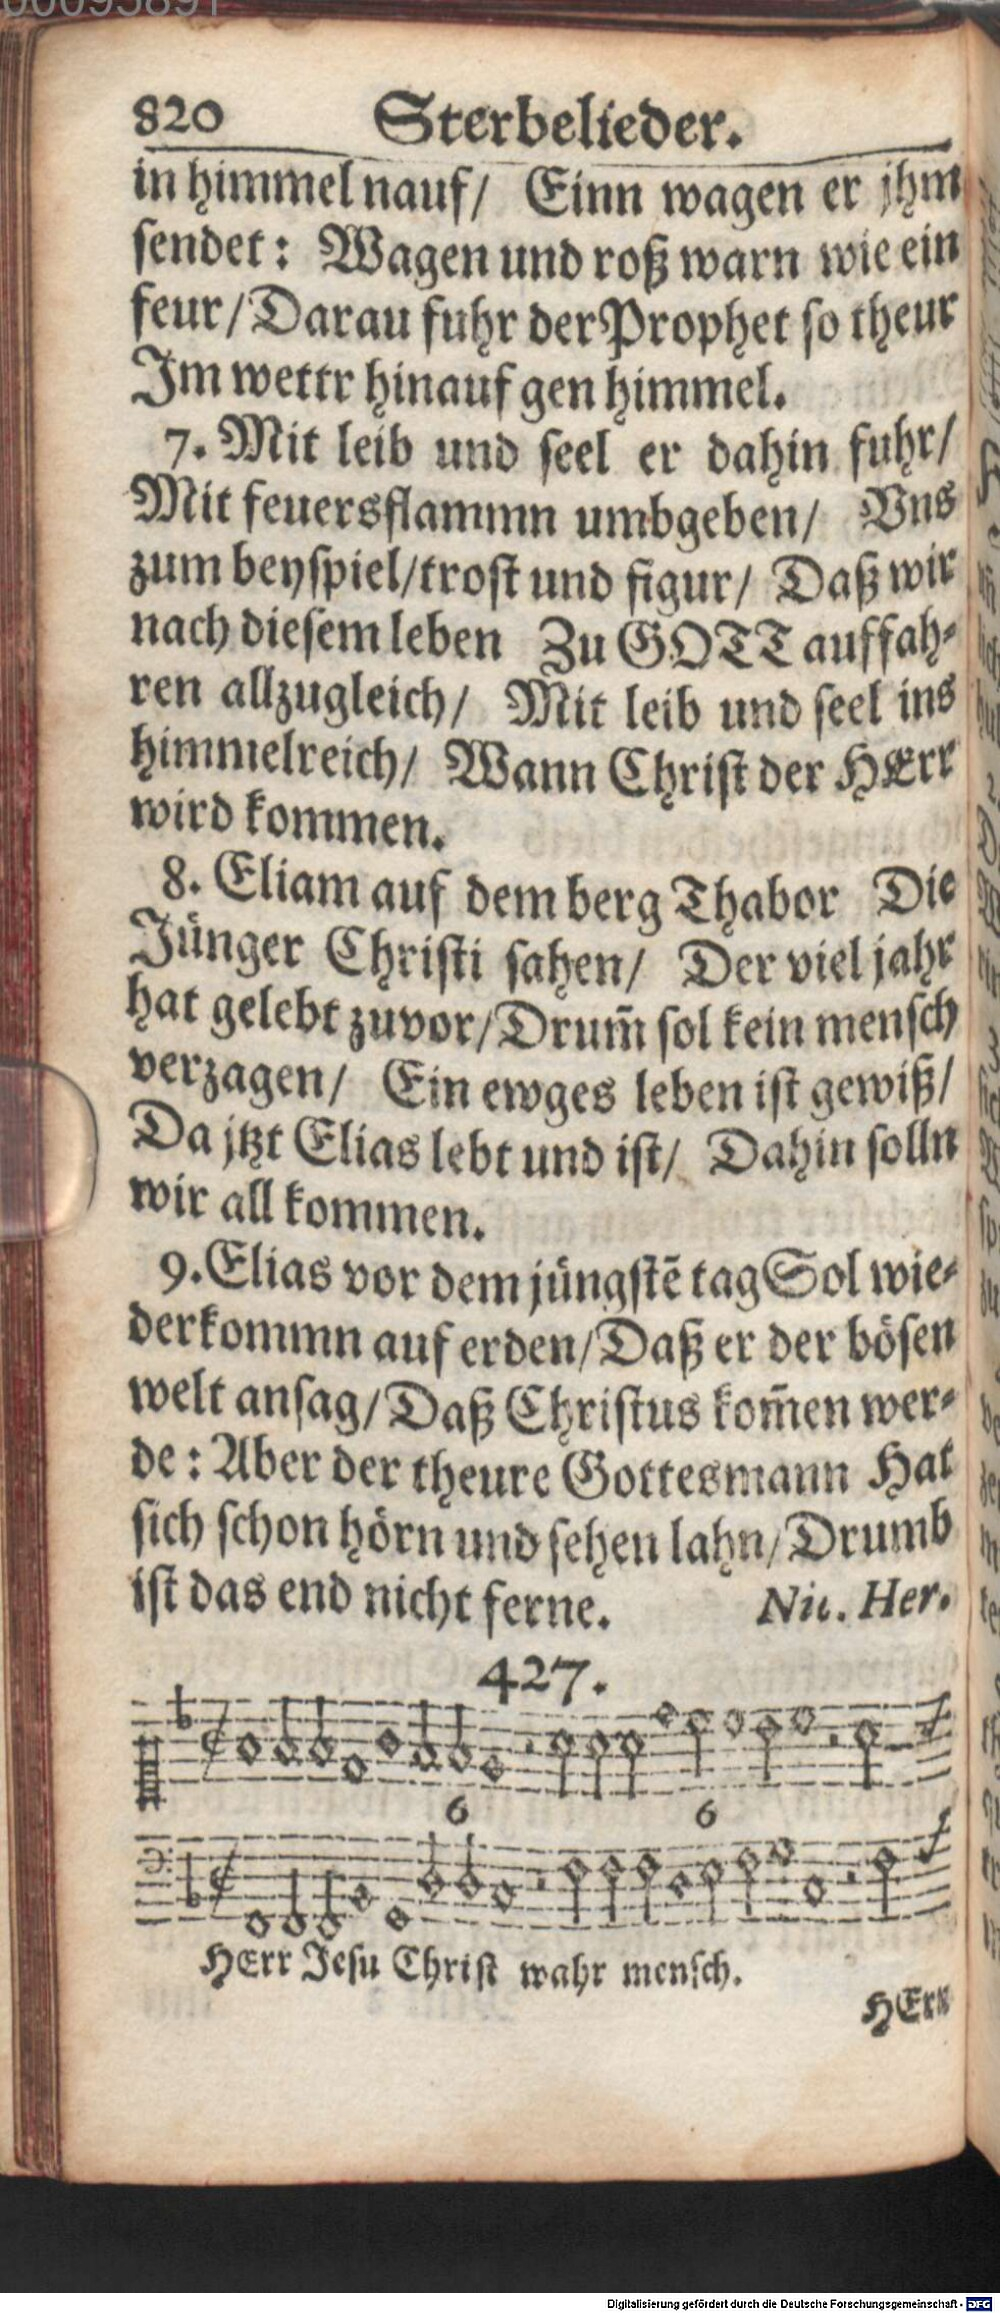 00095891
820 Sterbelieder.
in himmel nauf/ Einn wagen er jhm
sendet: Wagen und roß warn wie ein
feur/Darau fuhr der Prophet so theur
Im wettr hinauf gen himmel.
7. Mit leib und seel er dahin fuhr/
Mit feuersflammn umbgeben/ Vns
zum beyspiel/trost und figur/ Daß wir
nach diesem leben Zu GOTT auffah-
ren allzugleich/ Mit leib und seel ins
himmelreich/ Wann Christ der HErr
wird kommen.
8. Eliam auf dem berg Thabor Die
Jünger Christi sahen/ Der viel jahr
hat gelebt zuvor/Drum̃ sol kein mensch
verzagen/ Ein ewges leben ist gewiß/
Da jtzt Elias lebt und ist/ Dahin solln
wir all kommen.
9. Elias vor dem jüngstẽ tag Sol wie-
derkommn auf erden/Daß er der bösen
welt ansag/Daß Christus kom̃en wer-
de: Aber der theure Gottesmann Hat
sich schon hörn und sehen lahn/Drumb
ist das end nicht ferne. Nic. Her.
427.
6 6
HErr Jesu Christ wahr mensch.
HErr
Digitalisierung gefördert durch die Deutsche Forschungsgemeinschaft - DFG